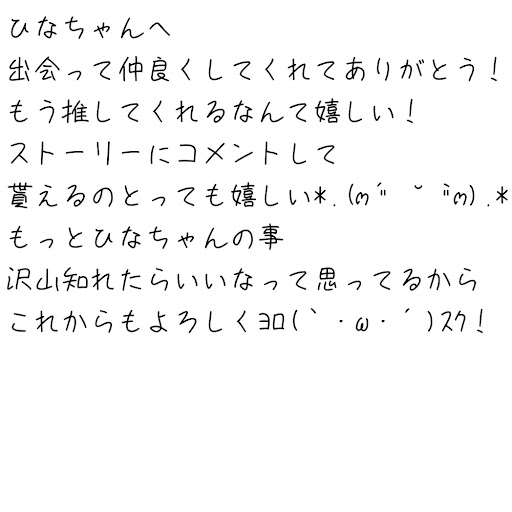 ひなちゃんへ
出会って仲良くしてくれてありがとう!
もう推してくれるなんて嬉しい!
ストーリーにコメントして
貰えるのとっても嬉しい*.(ო´〃 ˘ 〃`ო).*
もっとひなちゃんの事
沢山知れたらいいなって思ってるから
これからもよろしくﾖﾛ(｀・ω・´)ｽｸ!